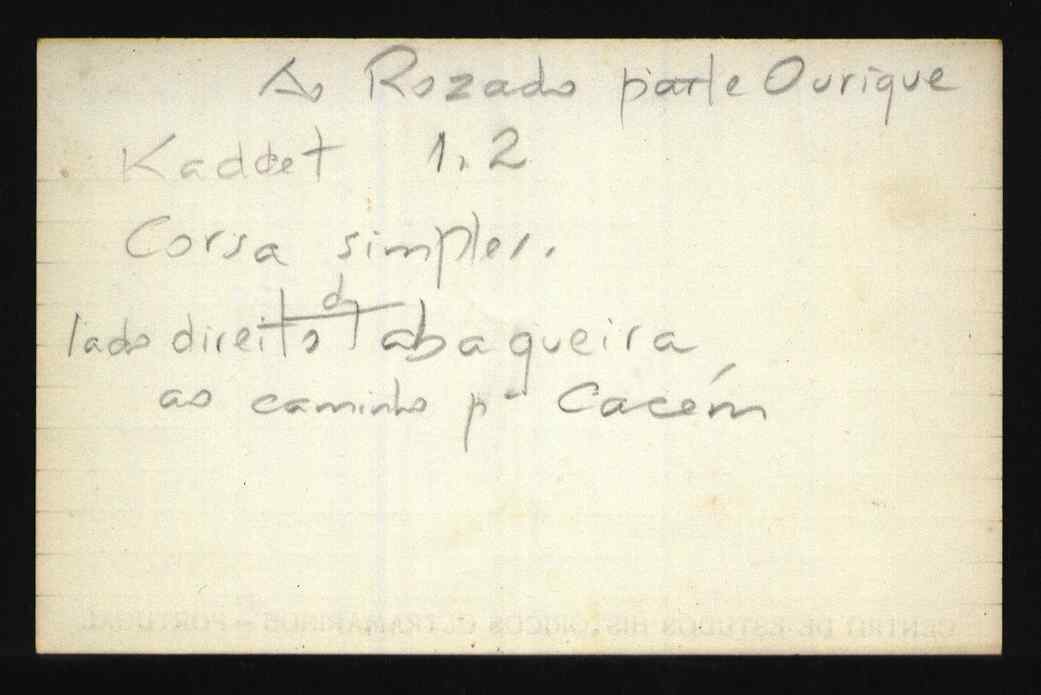 Ao Rozado parte Ourique
Kadett 1,2
Corsa simples.
lado direito d Tabaqueira
ao caminho pª Cacém
CENTRO DE ESTUDOS HISTÓRICOS ULTRAMARINOS — PORTUGAL